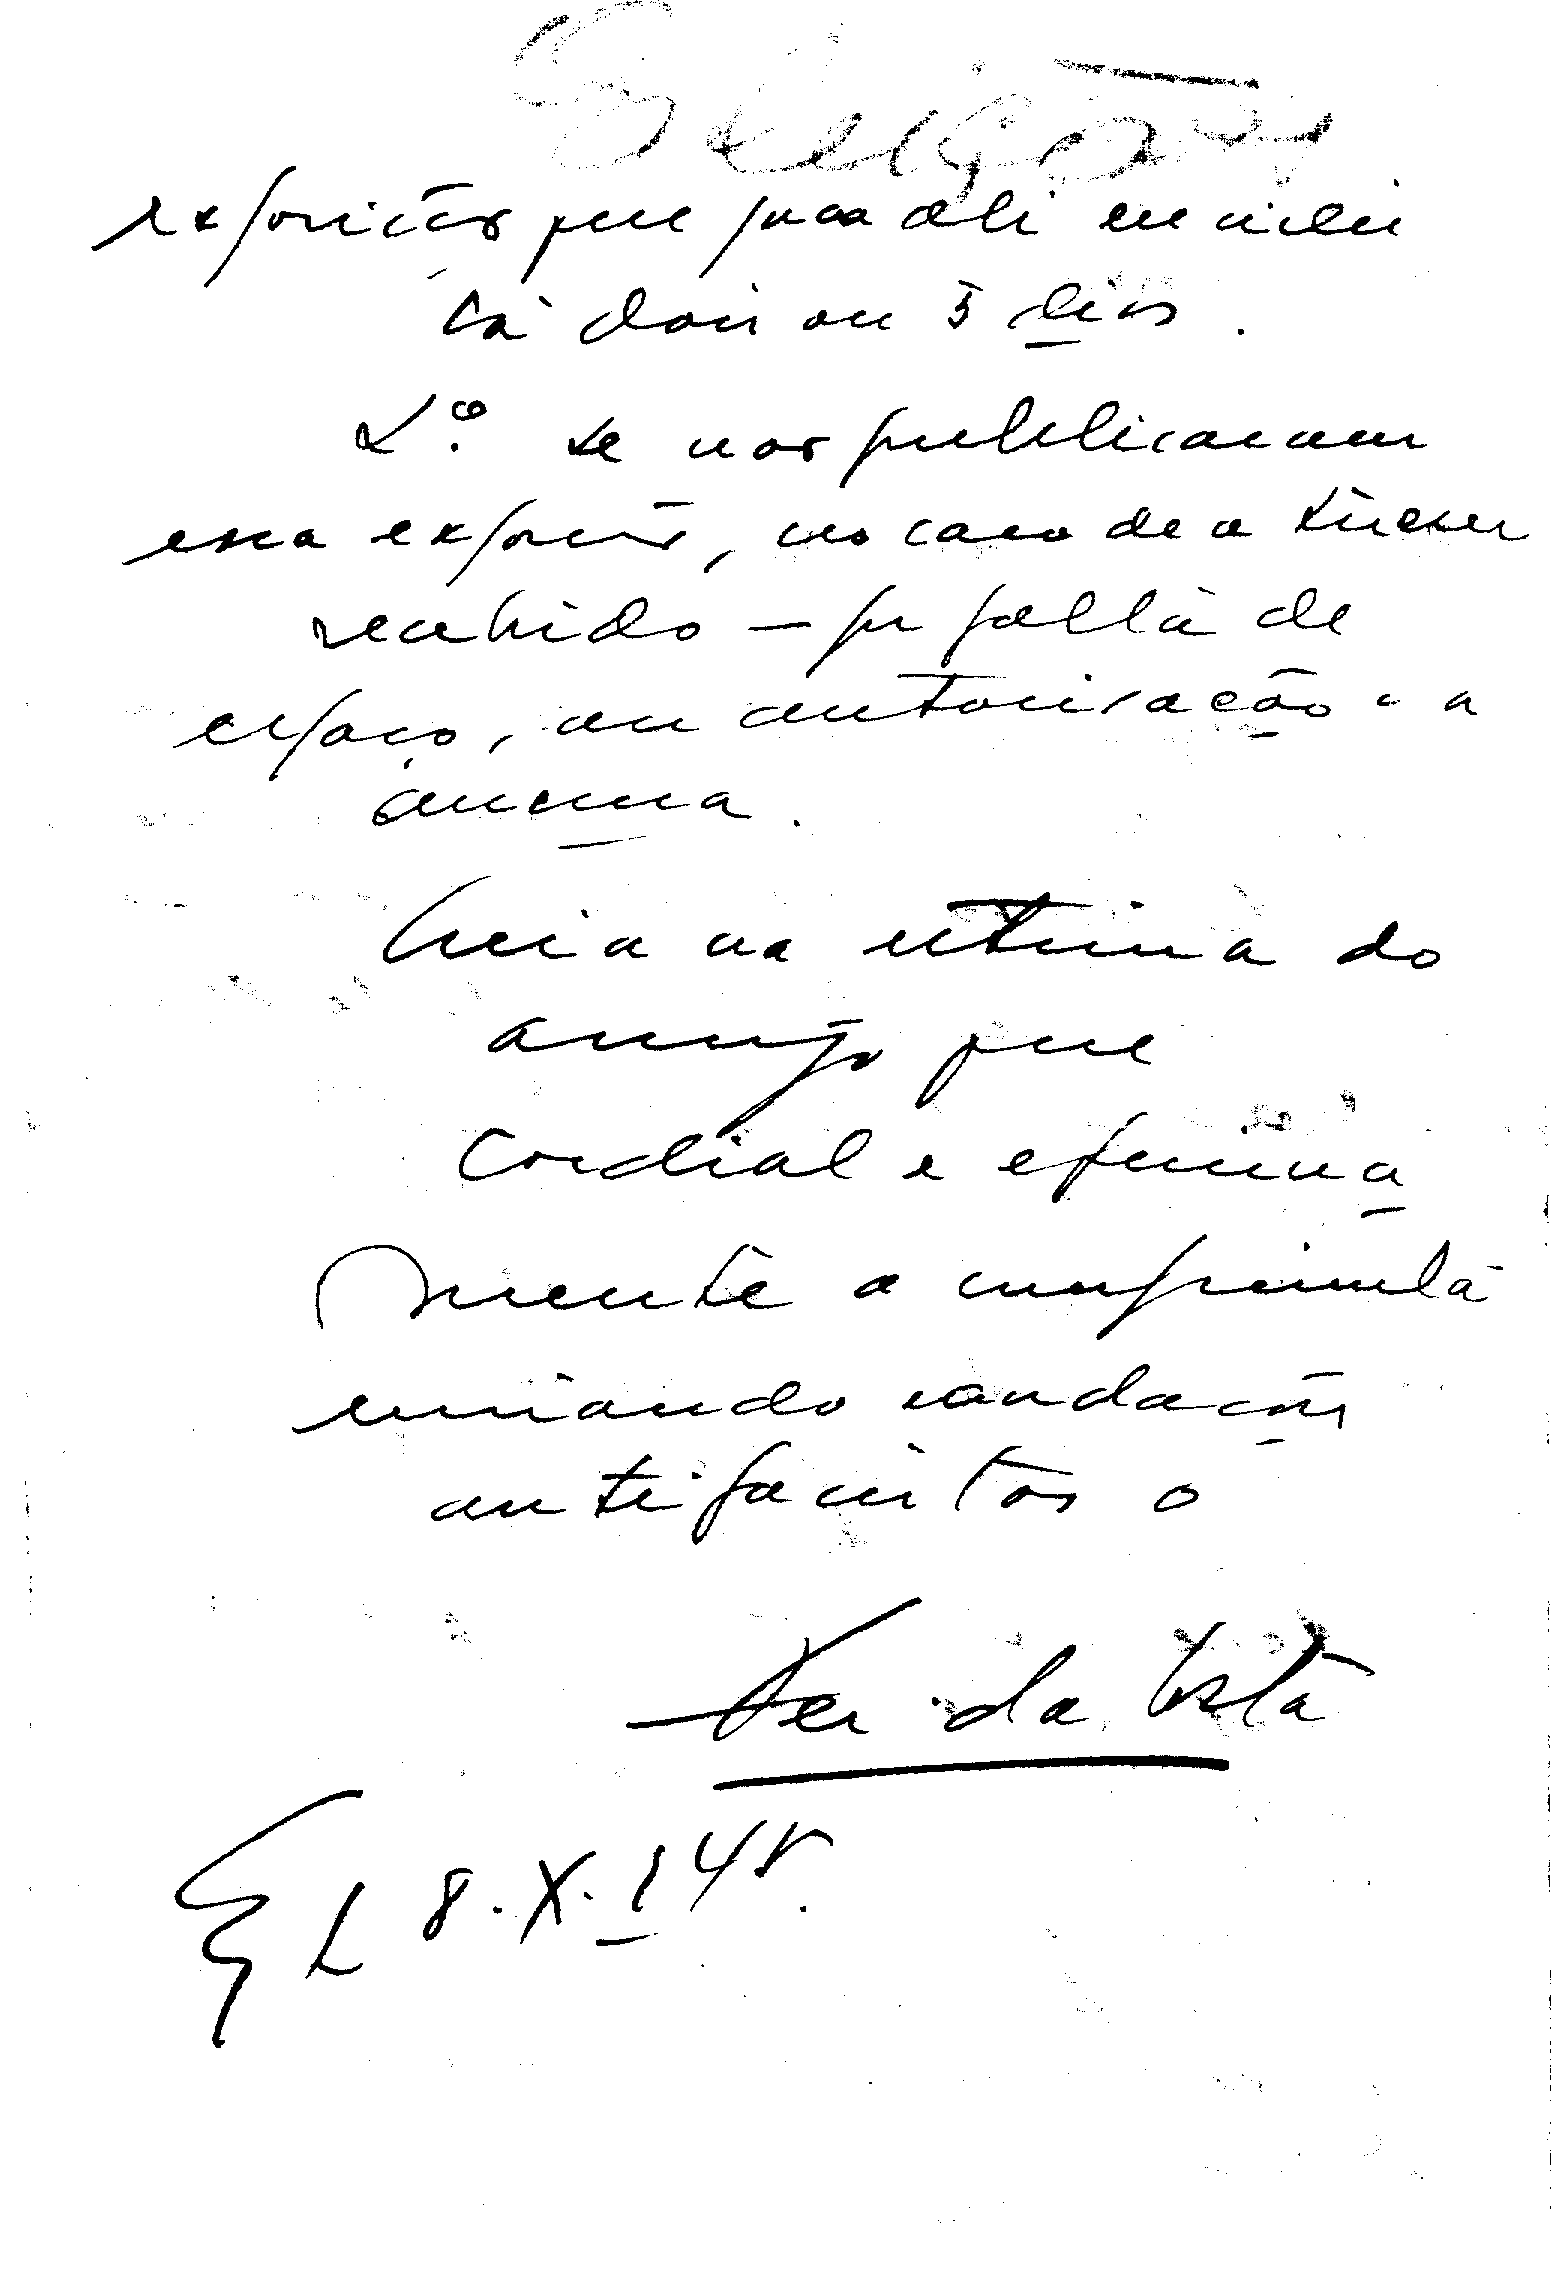 exposição que para ali enviei
há dois ou 3 dias.
2.º se nos publicaram
essa exposição, no caso de a terem
recebido — por falta de
espaço, ou autorização
Creia na estima do
amigo que
cordial e efusiva
mente o cumprimenta
enviando saudações
antifascistas o
da Costa
8.X.948.